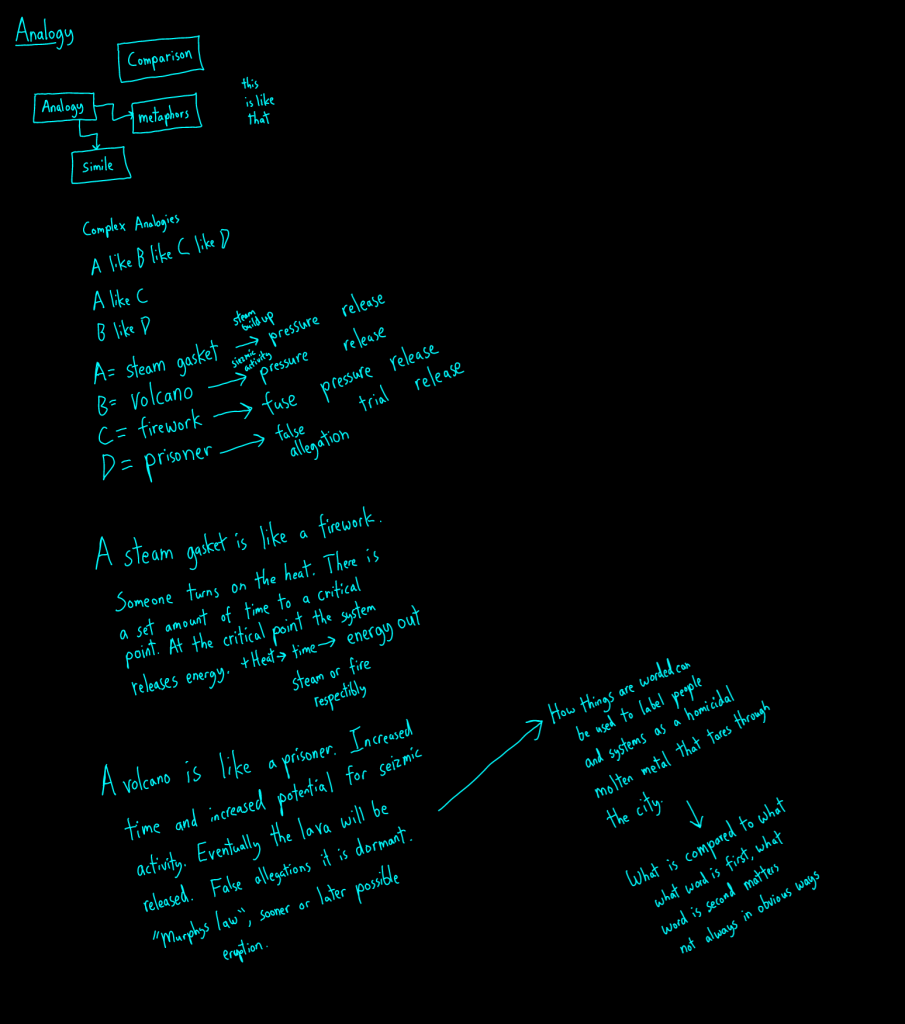 Analogy
Comparison
Analogy
metaphors
this
is like
that
simile
Complex Analogies
A like B like C like D
A like C
B like D
A= steam gasket → steam build up pressure release
B= volcano → siezmic activity pressure release
C= firework → fuse pressure release
D= prisoner → false allegation trial release
A steam gasket is like a firework.
Someone turns on the heat. There is
a set amount of time to a critical
point. At the critical point the system
releases energy. +Heat → time → energy out
steam or fire
respectibly
A volcano is like a prisoner. Increased
time and increased potential for seizmic
activity. Eventually the lava will be
released. False allegations it is dormant.
"Murphys law", sooner or later possible
eruption.
How things are worded can
be used to label people
and systems as a homicidal
molten metal that tores through
the city.
What is compared to what
what word is first, what
word is second matters
not always in obvious ways